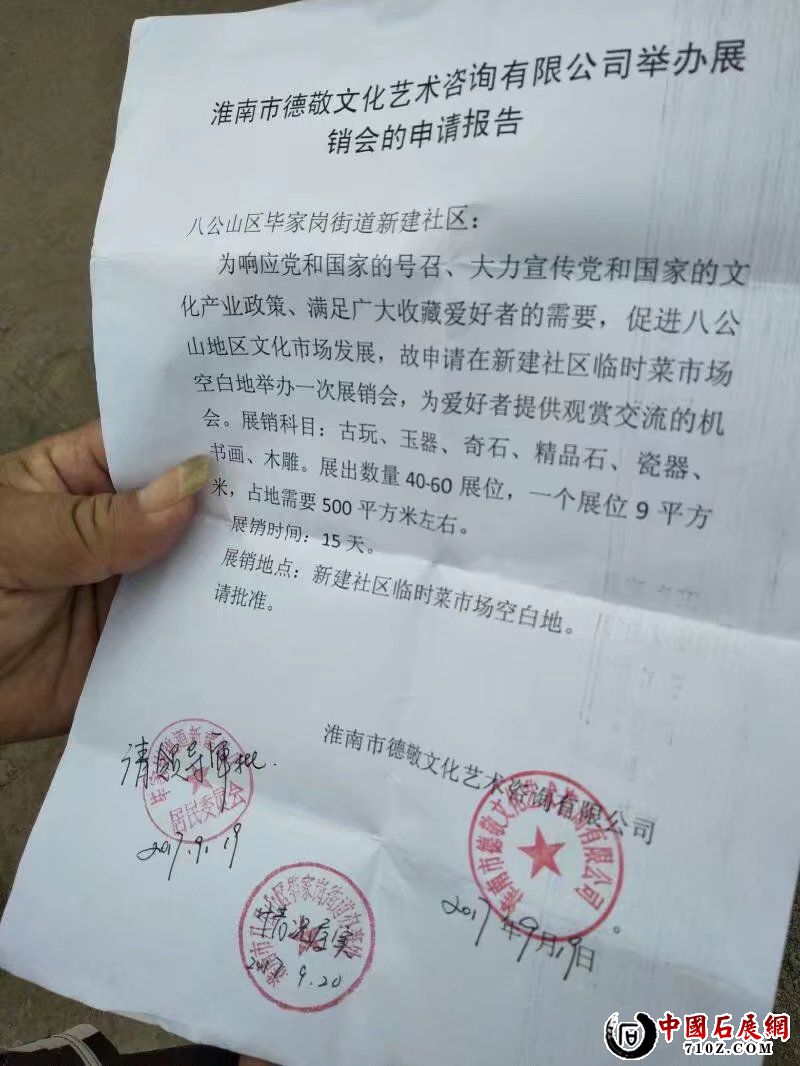 淮南市德敬文化艺术咨询有限公司举办展
销会的申请报告
八公山区毕家岗街道新建社区：
为响应党和国家的号召、大力宣传党和国家的文
化产业政策、满足广大收藏爱好者的需要，促进八公
山地区文化市场发展，故申请在新建社区临时菜市场
空白地举办一次展销会，为爱好者提供观赏交流的机
会。展销科目：古玩、玉器、奇石、精品石、瓷器、
书画、木雕。展出数量 40-60 展位，一个展位 9 平方
米，占地需要 500 平方米左右。
展销时间：15 天。
展销地点：新建社区临时菜市场空白地。
请批准。
淮南市德敬文化艺术咨询有限公司
淮南市德敬文化艺术咨询有限公司
2017年9月19日
。
请领导审批.
居民委员会
2017.9.19
情况属实
9.20
中國石展網
710Z.COM